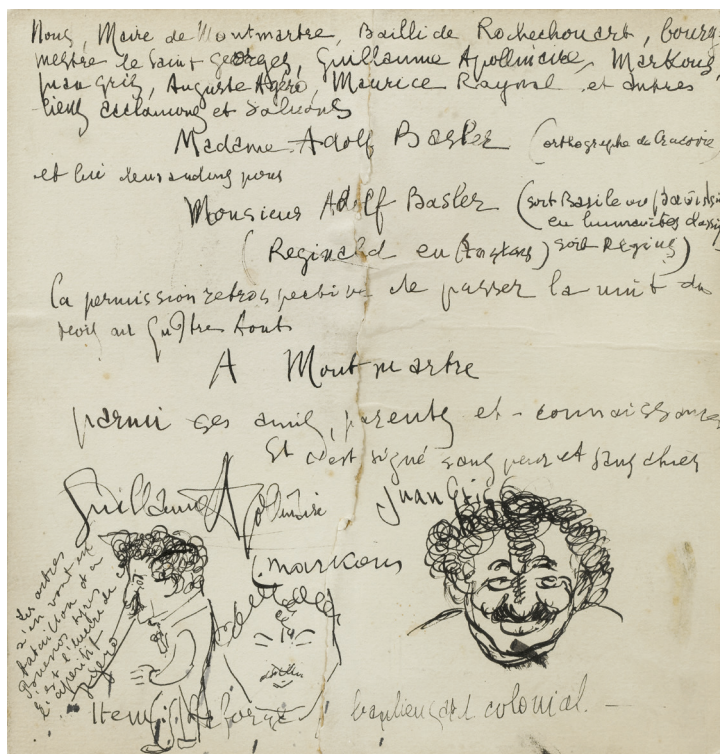 Nous, Maire de Montmartre, Bailli de Rochechouart, bourg-
mestre de Saint Georges, Guillaume Apollinaire, Markous,
Juan Gris, Auguste Agéro, Maurice Raynal et autres
lieux acclamons et saluons
Madame Adolf Basler (orthographe de Cracovie)
et lui demandons pour
Monsieur Adolf Basler (soit Basile ou
en humanités
(Reginald en soit Regius)
la permission retrospective de passer la nuit du
au
A Montmartre
parmi ses amis, parents et connaissances
Et c'est signé sans peur et sans
Guillaume Apollinaire
Juan Gris
Markous
Les autres
s'en vont en
bataillon d'a
Buenos Aires
c'est l'heure de
l'apéritif
Agero
Henri
colonial.